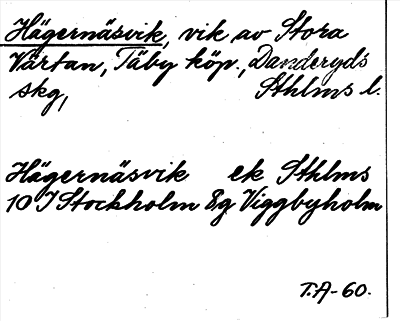 Hägernäsvik, vik av Stora
Värtan, Täby köp., Danderyds
skg, Sthlms l.
Hägernäsvik ek Sthlms
10 I Stockholm 8g Viggbyholm
T.A-60.